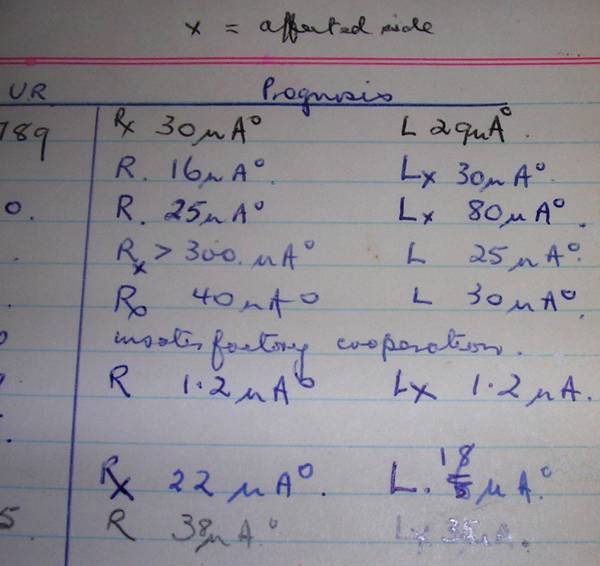 x = affected side
UR Prognosis
789 Rx 30µA° L 29µA°.
R. 16µA°. Lx 30µA°.
0. R. 25µA° Lx 80µA°.
. Rx > 300.µA° L 25µA°.
. 40µA° L 30µA°.
0 cooperation.
R 1.2µA° Lx 1.2µA.
Rx 22µA°. L. 18 µA°.
5. R 38µA.° Lx 35µA.